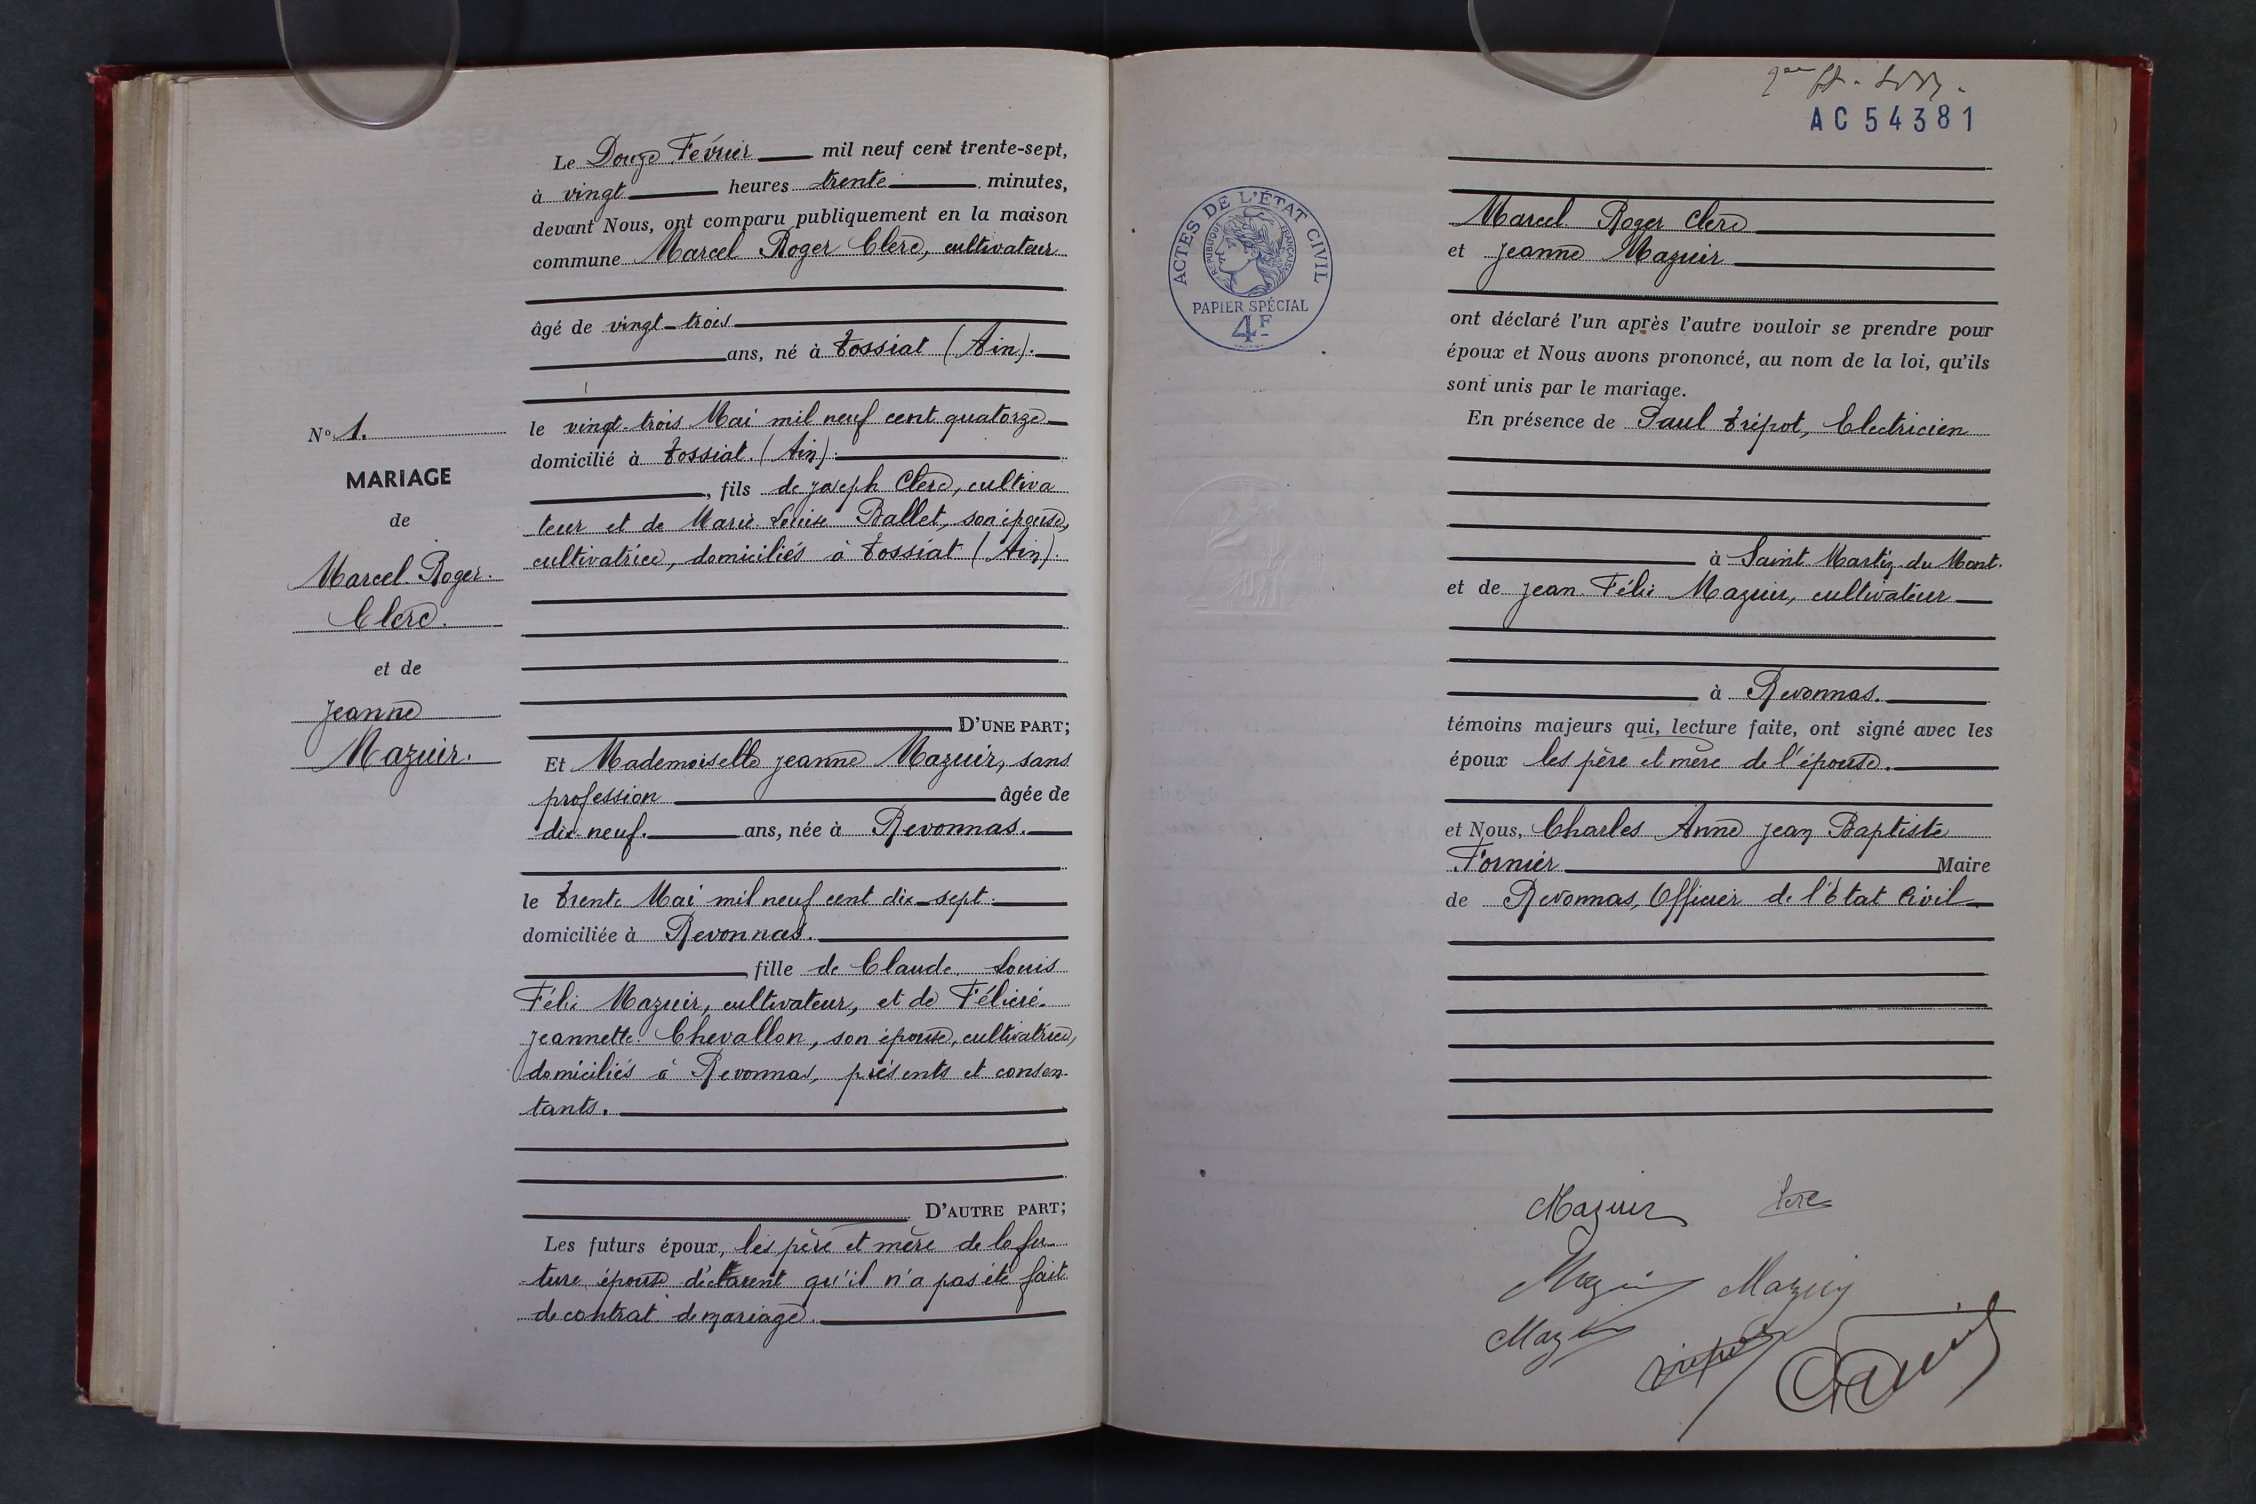 Le Douze Février mil neuf cent trente-sept,
à vingt heures trente minutes,
devant Nous, ont comparu publiquement en la maison
commune Marcel Roger Clerc, cultivateur
âgé de vingt-trois
ans, né à Tossiat (Ain).
le vingt-trois Mai mil neuf cent quatorze
domicilié à Tossiat (Ain).
, fils de Joseph Clerc, cultiva
teur et de Marie Louise Ballet, son épouse,
cultivatrice, domiciliés à Tossiat (Ain).
D'UNE PART;
N° 1.
MARIAGE
de
Marcel Roger
Clerc.
et de
Jeanne
Mazuir.
Et Mademoiselle Jeanne Mazuir, sans
profession âgée de
dix-neuf. ans, née à Revonnas.
le trente Mai mil neuf cent dix-sept.
domiciliée à Revonnas.
fille de Claude Louis
Félix Mazuir, cultivateur, et de Félicie
Jeannette Chevallon, son épouse, cultivatrice,
domiciliés à Revonnas, présents et consen-
tants.
D'AUTRE PART;
Les futurs époux, les père et mère de la fu-
ture épouse déclarent qu'il n'a pas été fait
de contrat de mariage.
AC54381
ACTES DE L'ÉTAT CIVIL
RÉPUBLIQUE FRANÇAISE
PAPIER SPÉCIAL
4F
Marcel Roger Clerc
et Jeanne Mazuir
ont déclaré l'un après l'autre vouloir se prendre pour
époux et Nous avons prononcé, au nom de la loi, qu'ils
sont unis par le mariage.
En présence de Paul Tripot, Electricien
à Saint Martin du Mont.
et de Jean Félix Mazuir, cultivateur
à Revonnas.
témoins majeurs qui, lecture faite, ont signé avec les
époux les père et mère de l'épouse.
et Nous, Charles Anne Jean Baptiste
Fornier Maire
de Revonnas, Officier de l'Etat Civil
Mazuir Clerc
Mazuir Mazuir
Mazuir Tripot